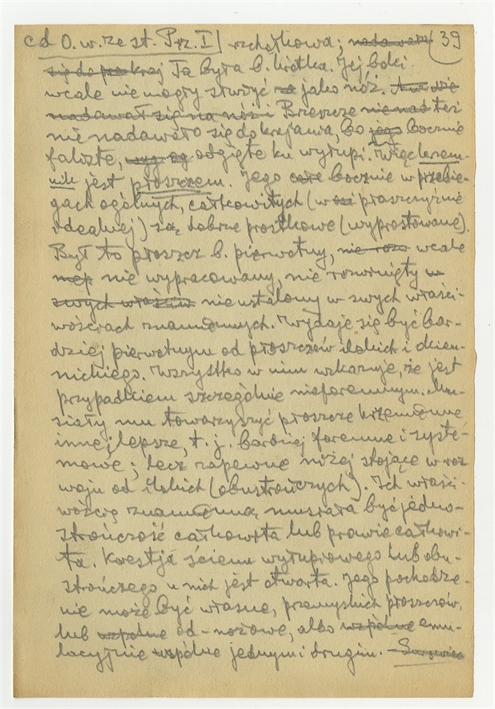 cd O. w. ze st. Prz. I / rzchatkowa; nada wała 39
się do kraj Ta była b. krótka. Jej boki
wcale nie mogły służyć za jako nóż. A w
nadawał się na nóż i Pierwsze też
nie nadawało się do krajania, bo jego bocznie
faliste, odgięte ku wyłupi. Więc krzem-
nik jest płoszczem. Jego całe bocznie w przebie-
gach ogólnych, całkowitych (w płaszczyźnie
idealnej) są dobrze prostkowe (wyprostowane).
Był to płoszcz b. pierwotny, nie wcale
nie wypracowany, nie rozwinięty w
swych nie ustalony w swych właści-
wościach znamiennych. Wydaje się być bar-
dziej pierwotnym od płoszczów ilskich i
nickiego. Wszystko w nim wskazuje, że jest
przypadkiem szczególnie nieforemnym. Mu-
siały mu towarzyszyć płoszcze krzemienne
inne, lepsze, t. j. bardziej foremne i syste-
mowe; lecz zapewne niżej stojące w roz
woju od ilskich (obustrończych). Ich właści-
wością znamienną musiała być jedno-
strończość całkowita lub prawie całkowi-
ta. Kwestja ściem wyłupowego lub obu-
strończego u nich jest otwarta. Jego pochodze-
nie może być własne, przemyskich płoszczów,
lub wspólne od-nożowe, albo wspólne emu-
lacyjnie wspólne jednym i drugim. — Surowiec